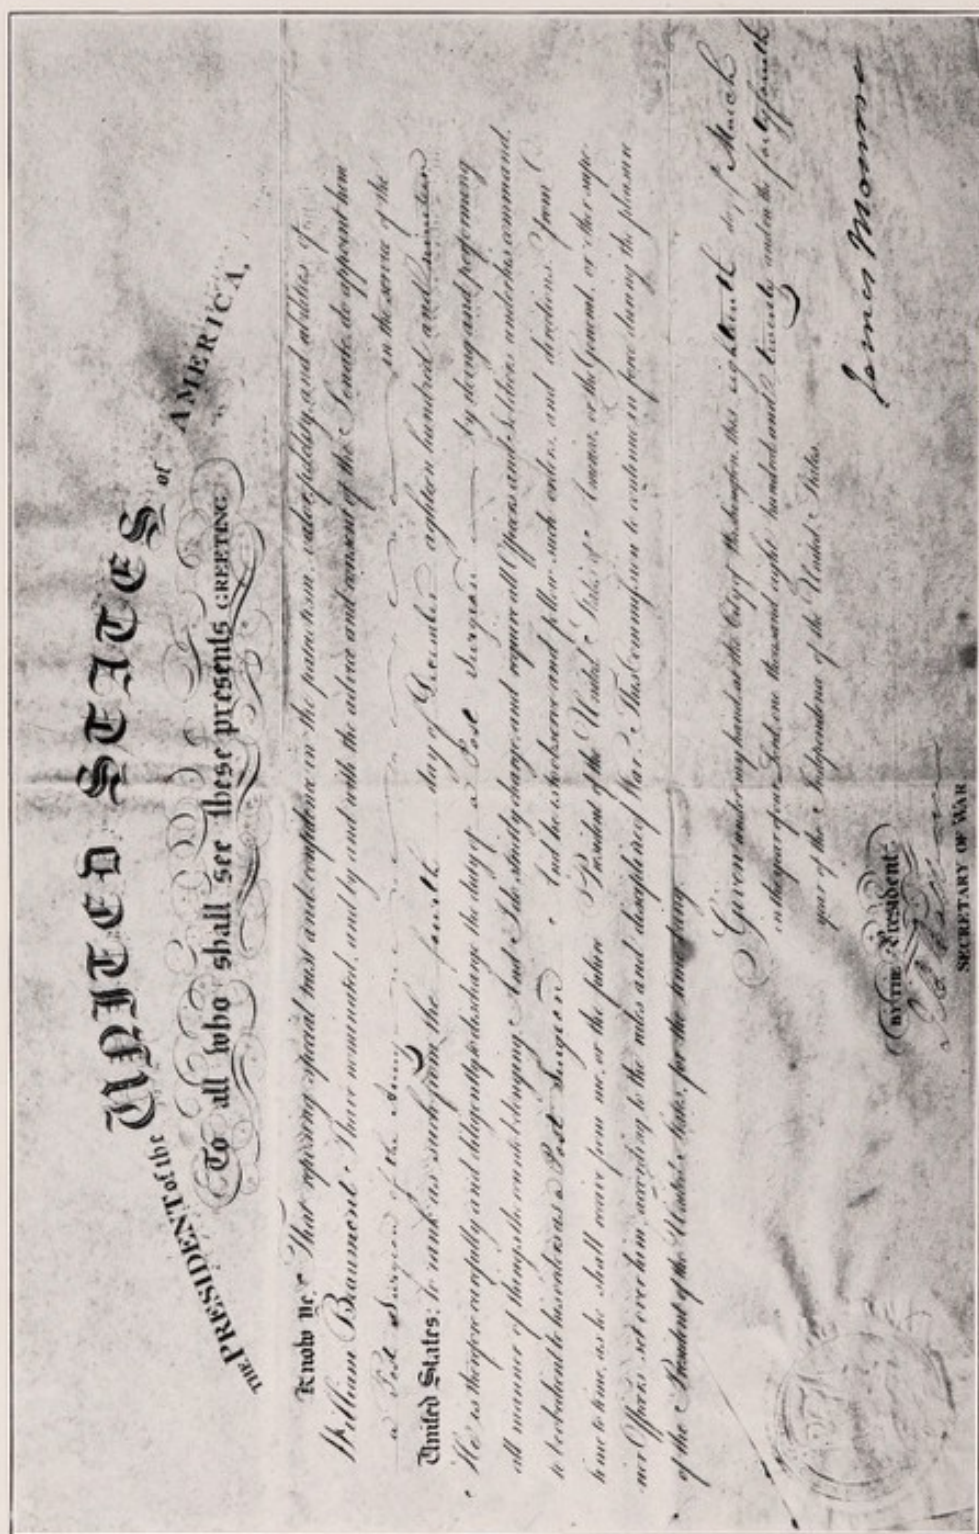 THE PRESIDENT of the UNITED STATES of AMERICA,
To all who shall see these presents GREETING
Know Ye, That reposing special trust and confidence in the patriotism, valor, fidelity, and abilities of
William Beaumont I have nominated, and by and with the advice and consent of the Senate do appoint him
a Post Surgeon of the Army in the service of the
United States: to rank as such from the fourth day of December eighteen hundred and nineteen
He is therefore carefully and diligently to discharge the duty of a Post Surgeon by doing and performing
all manner of things thereunto belonging. And I do strictly charge, and require all Officers and Soldiers under his command,
to be obedient to his orders as a Post Surgeon And he is to observe and follow such orders, and directions, from
time to time, as he shall receive from me, or the future President of the United States of America, or the General, or other supe-
rior Officers set over him, according to the rules and discipline of War. This Commission to continue in force during the pleasure
of the President of the United States, for the time being.
Given under my hand, at the City of Washington, this eighteenth day of March
in the year of our Lord, one thousand eight hundred and twenty and in the forty fourth
year of the Independence of the United States.
James Monroe
BY THE President,
SECRETARY OF WAR